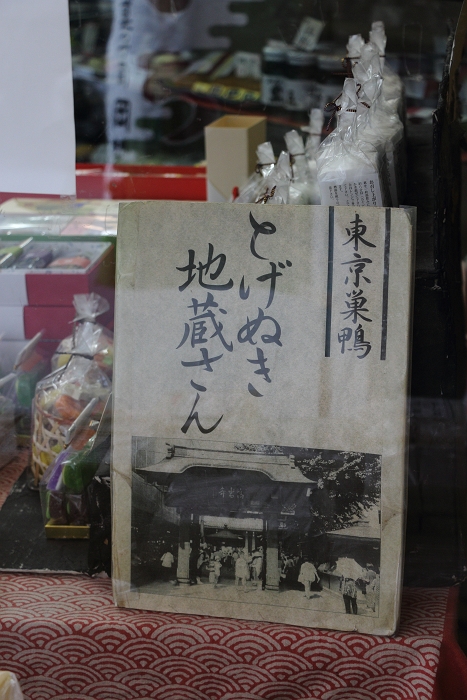 東京巣鴨
とげぬき
地蔵さん